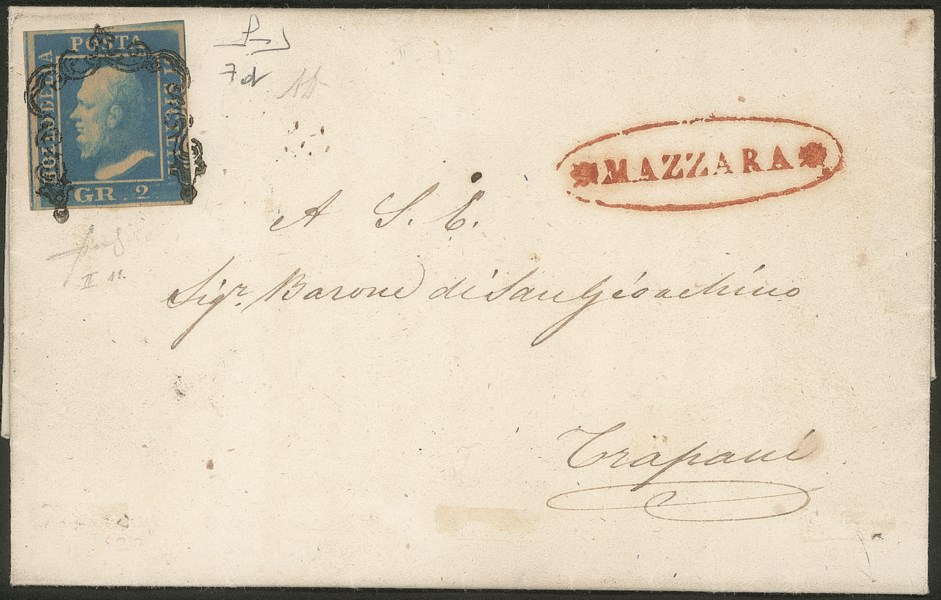 POSTA
BOLLO DELLA
DI SICILIA
GR. 2
MAZZARA
A S. E.
Sigr. Barone di San Gioachino
Trapani
7 d
II